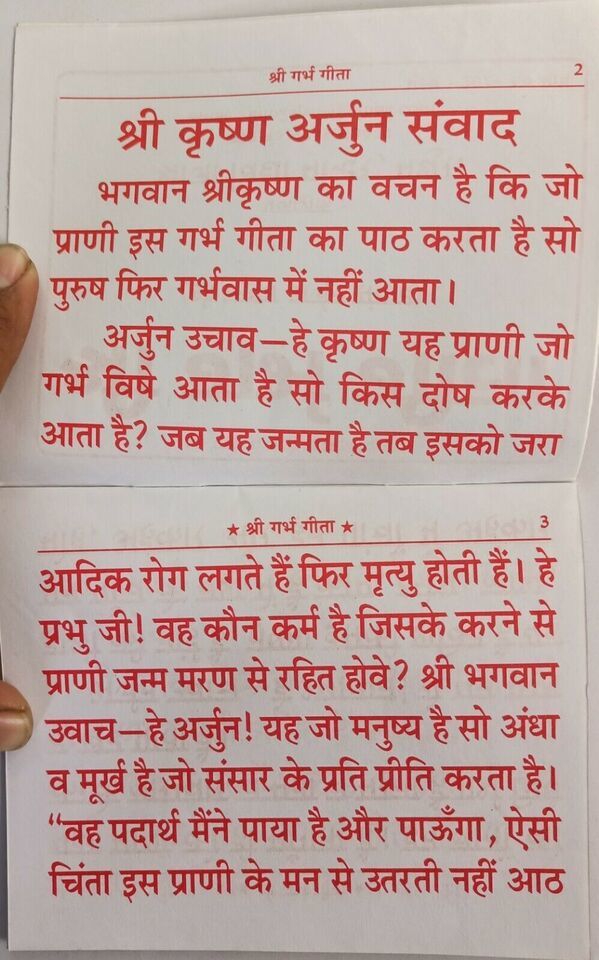 श्री गर्भ गीता 2
श्री कृष्ण अर्जुन संवाद
भगवान श्रीकृष्ण का वचन है कि जो
प्राणी इस गर्भ गीता का पाठ करता है सो
पुरुष फिर गर्भवास में नहीं आता।
अर्जुन उचाव—हे कृष्ण यह प्राणी जो
गर्भ विषे आता है सो किस दोष करके
आता है? जब यह जन्मता है तब इसको जरा
★ श्री गर्भ गीता ★ 3
आदिक रोग लगते हैं फिर मृत्यु होती हैं। हे
प्रभु जी! वह कौन कर्म है जिसके करने से
प्राणी जन्म मरण से रहित होवे? श्री भगवान
उवाच—हे अर्जुन! यह जो मनुष्य है सो अंधा
व मूर्ख है जो संसार के प्रति प्रीति करता है।
“वह पदार्थ मैंने पाया है और पाऊँगा, ऐसी
चिंता इस प्राणी के मन से उतरती नहीं आठ